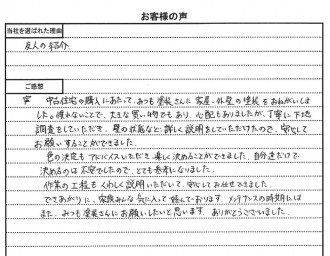 お客様の声
当社を選ばれた理由
友人の紹介
ご感想
中古住宅の購入にあたって、みつも塗装さんに家屋・外壁の塗装をおねがいしま
した。慣れないことで、大きな買い物でもあり、心配もありましたが、丁寧に下地
調査をしていただき、壁の状態など詳しく説明をしていただけたので、安心して
お願いすることができました。
色の決定もアドバイスいただき、楽しく決めることができました。自分達だけで
決めるのは不安でしたので、とても参考になりました。
作業の工程もくわしく説明いただいて、安心してお任せできました。
できあがりに、家族みんな気に入って喜んでおります。メンテナンスの時期には
また、みつも塗装さんにお願いしたいと思います。ありがとうございました。